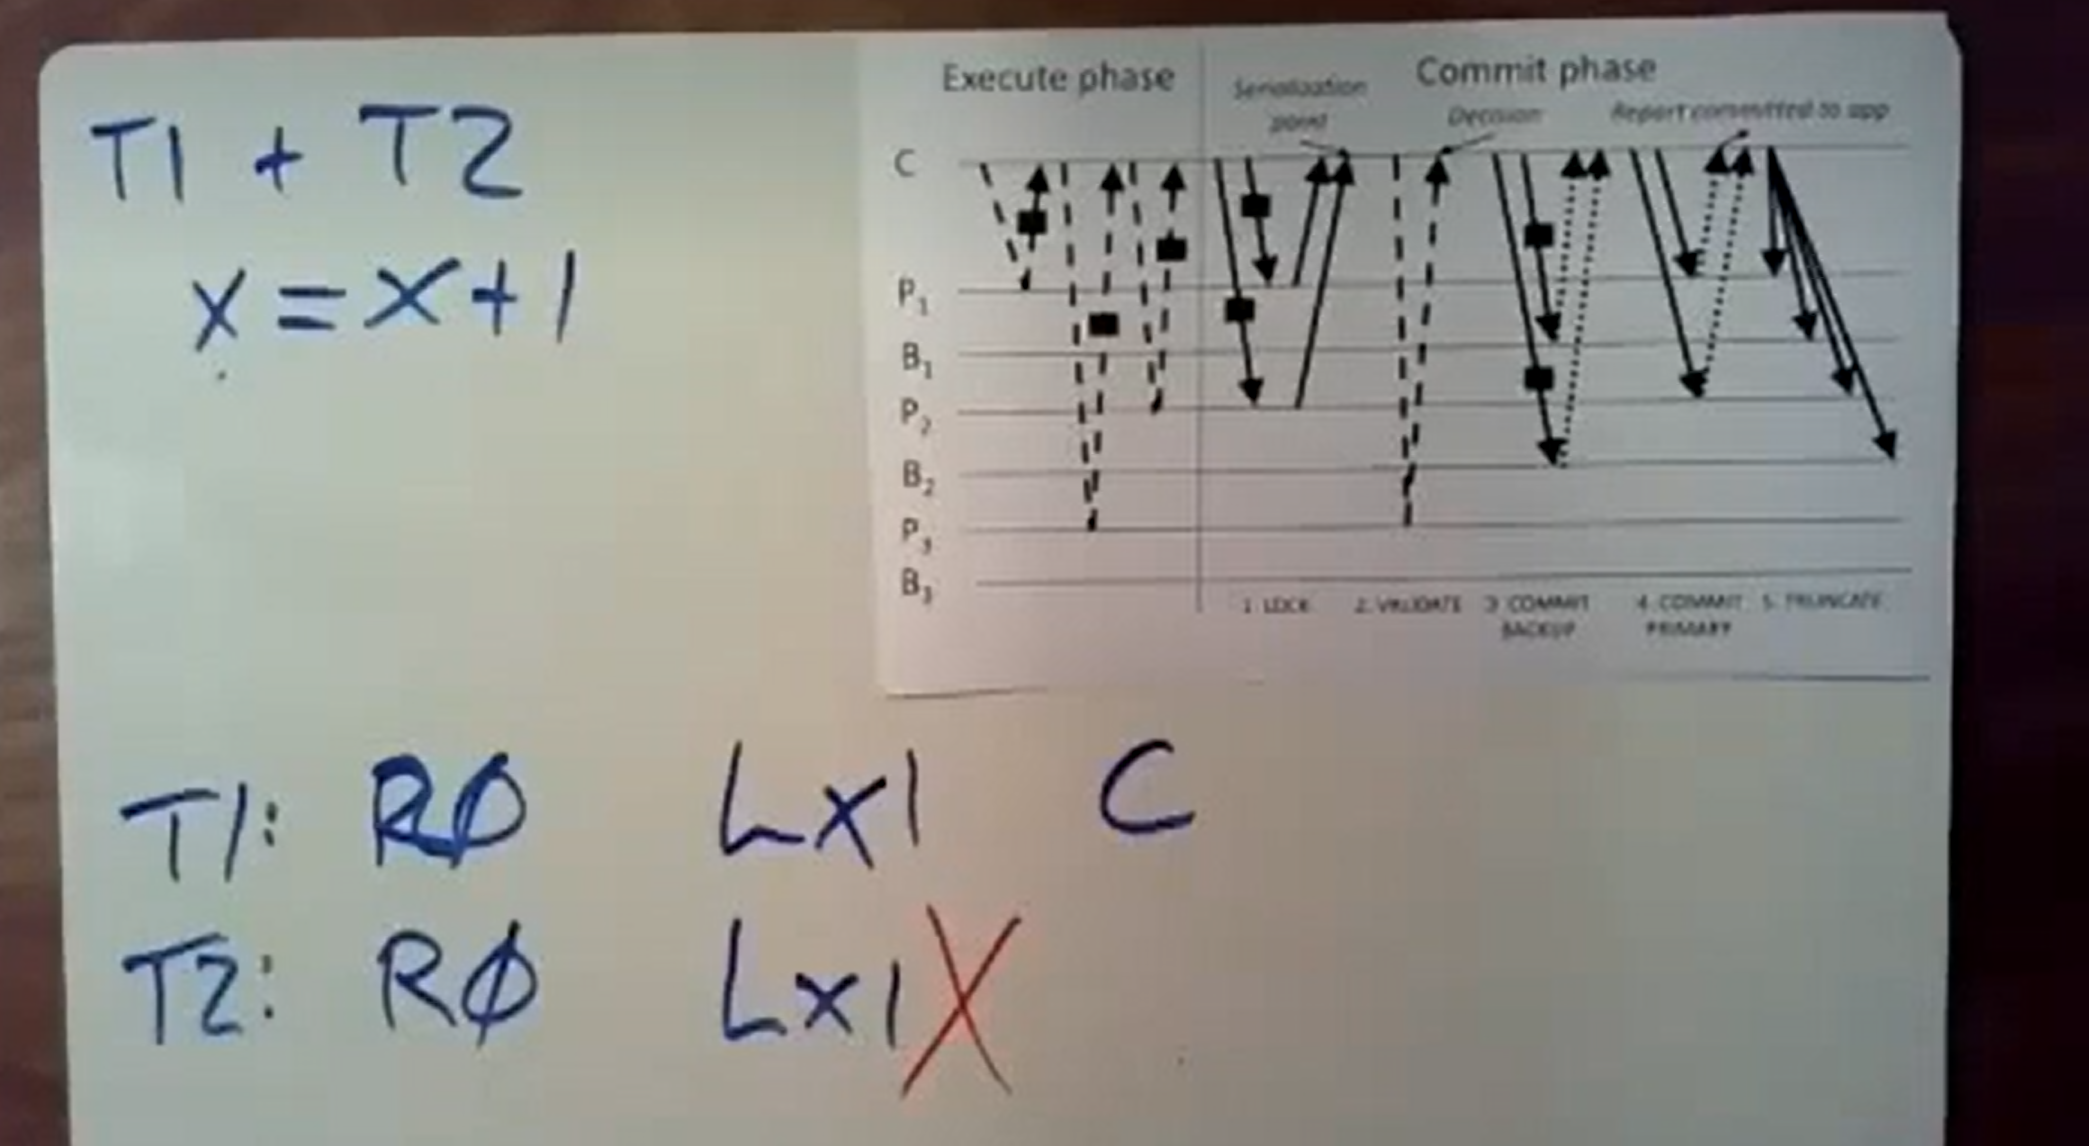 T1 + T2
x = x + 1
Execute phase
Commit phase
Serialization
point
Decision
Report committed to app
C
P1
B1
P2
B2
P3
B3
1. LOCK
2. VALIDATE
3. COMMIT
BACKUP
4. COMMIT
PRIMARY
5. TRUNCATE
T1: RØ Lx1 C
T2: RØ Lx1 X